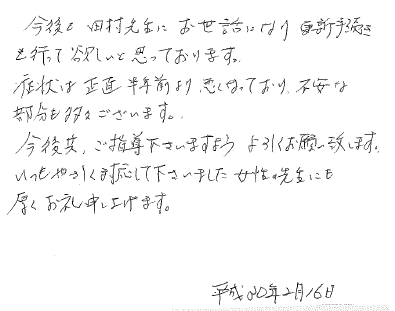 今後も田村先生にお世話になり更新手続き
を行って欲しいと思っております。
症状は正直半年前より悪くなっており、不安な
部分も多々ございます。
今後共、ご指導下さいますよう よろしくお願い致します。
いつもやさしく対応して下さいました女性の先生にも
厚くお礼申し上げます。
平成20年2月16日